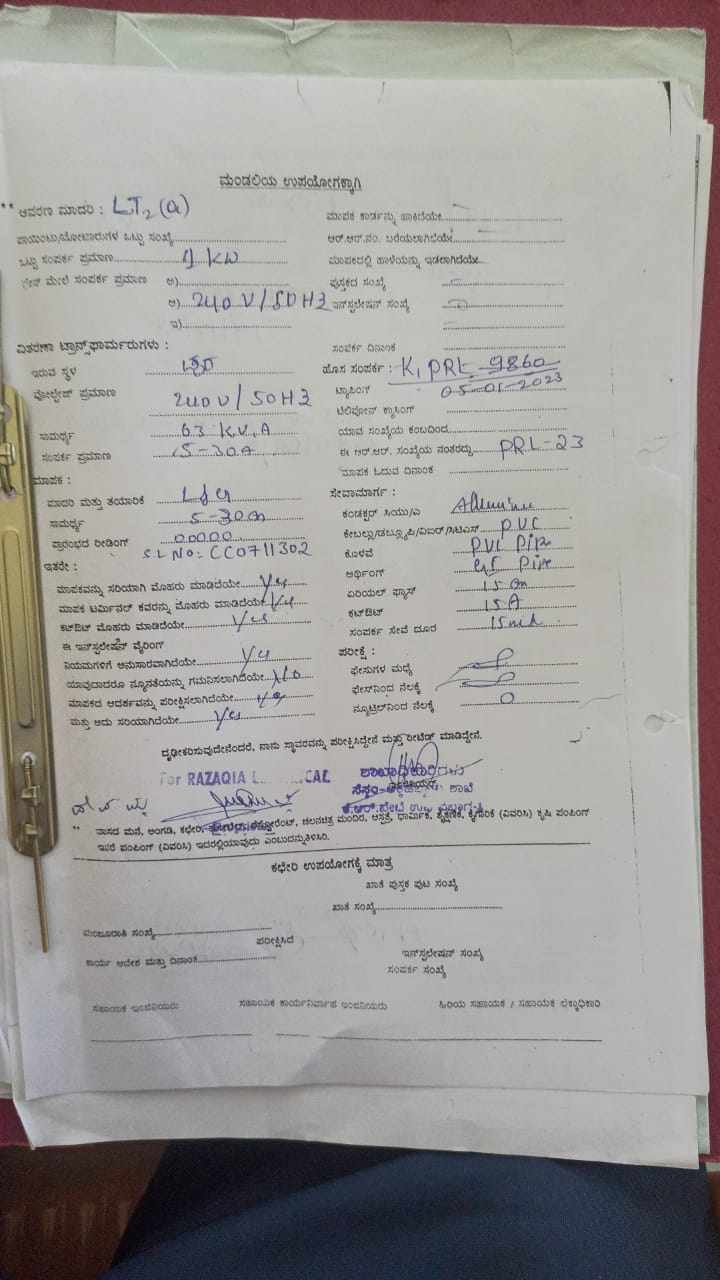 ಮಂಡಲಿಯ ಉಪಯೋಗಕ್ಕಾಗಿ
** ಆವರಣ ಮಾದರಿ : LT2 (a)
ಮಾಪಕ ಕಾರ್ಡನ್ನು ಹಾಕಿದೆಯೇ
ಪಾಯಿಂಟು/ಮೋಟಾರುಗಳ ಒಟ್ಟು ಸಂಖ್ಯೆ
ಆರ್.ಆರ್.ನಂ. ಬರೆಯಲಾಗಿದೆಯೇ
ಒಟ್ಟು ಸಂಪರ್ಕ ಪ್ರಮಾಣ KW
ಮಾಪಕದಲ್ಲಿ ಹಾಳೆಯನ್ನು ಇಡಲಾಗಿದೆಯೇ
ಮೇಲೆ ಸಂಪರ್ಕ ಪ್ರಮಾಣ ಅ)
ಪುಸ್ತಕದ ಸಂಖ್ಯೆ
ಆ) 240 V/50HZ
ಇನ್‌ಸ್ಟಲೇಷನ್ ಸಂಖ್ಯೆ
ಇ)
ವಿತರಣಾ ಟ್ರಾನ್ಸ್‌ಫಾರ್ಮರುಗಳು :
ಸಂಪರ್ಕ ದಿನಾಂಕ
ಇರುವ ಸ್ಥಳ
ಹೊಸ ಸಂಪರ್ಕ : K, PRL-9860
ವೋಲ್ಟೇಜ್ ಪ್ರಮಾಣ 240V/50HZ
ಟ್ಯಾಪಿಂಗ್ 05-01-2023
ಟೆಲಿಫೋನ್ ಕ್ರಾಸಿಂಗ್
ಸಾಮರ್ಥ್ಯ 63 K.V.A
ಯಾವ ಸಂಖ್ಯೆಯ ಕಂಬದಿಂದ
ಸಂಪರ್ಕ ಪ್ರಮಾಣ 15-30A
ಈ ಆರ್.ಆರ್. ಸಂಖ್ಯೆಯ ನಂತರದ್ದು PRL-23
ಮಾಪಕ ಓದುವ ದಿನಾಂಕ
ಮಾಪಕ :
ಸೇವಾಮಾರ್ಗ :
ಮಾದರಿ ಮತ್ತು ತಯಾರಿಕೆ
ಕಂಡಕ್ಟರ್ ಸಿಯು/ಎ
ಸಾಮರ್ಥ್ಯ 5-30a
ಕೇಬಲ್ಲು/ಡಬ್ಲ್ಯೂಪಿ/ವಿಐಆರ್/ಸಿಟಿಎಸ್ PVC
ಪ್ರಾರಂಭದ ರೀಡಿಂಗ್ 00000
ಕೊಳವೆ PVC Pipe
S.L No: CC0711302
ಅರ್ಥಿಂಗ್ GI Pipe
ಇತರೇ :
ಏರಿಯಲ್ ಫ್ಯೂಸ್ 15
ಮಾಪಕವನ್ನು ಸರಿಯಾಗಿ ಮೊಹರು ಮಾಡಿದೆಯೇ Yes
ಕಟ್‌ಔಟ್ 15A
ಮಾಪಕ ಟರ್ಮಿನಲ್ ಕವರನ್ನು ಮೊಹರು ಮಾಡಿದೆಯೇ Yes
ಸಂಪರ್ಕ ಸೇವೆ ದೂರ 15
ಕಟ್‌ಔಟ್ ಮೊಹರು ಮಾಡಿದೆಯೇ Yes
ಈ ಇನ್‌ಸ್ಟಲೇಷನ್ ವೈರಿಂಗ್
ಪರೀಕ್ಷೆ :
ನಿಯಮಗಳಿಗೆ ಅನುಸಾರವಾಗಿದೆಯೇ Yes
ಫೇಸುಗಳ ಮಧ್ಯೆ
ಯಾವುದಾದರೂ ನ್ಯೂನತೆಯನ್ನು ಗಮನಿಸಲಾಗಿದೆಯೇ No
ಫೇಸ್‌ನಿಂದ ನೆಲಕ್ಕೆ
ಮಾಪಕದ ಆದರ್ಶವನ್ನು ಪರೀಕ್ಷಿಸಲಾಗಿದೆಯೇ
ನ್ಯೂಟ್ರಲ್‌ನಿಂದ ನೆಲಕ್ಕೆ 0
ಮತ್ತು ಅದು ಸರಿಯಾಗಿದೆಯೇ Yes
ದೃಢೀಕರಿಸುವುದೇನೆಂದರೆ, ನಾನು ಸ್ಥಾವರವನ್ನು ಪರೀಕ್ಷಿಸಿದ್ದೇನೆ ಮತ್ತು ರೀಟೆಡ್ ಮಾಡಿದ್ದೇನೆ.
For RAZAQIA
ಶಾಖಾಧಿಕಾರಿಗಳು
** ವಾಸದ ಮನೆ, ಅಂಗಡಿ, ಕಛೇರಿ, ಹೋಟೆಲ್, ರೆಸ್ಟೋರೆಂಟ್, ಚಲನಚಿತ್ರ ಮಂದಿರ, ಆಸ್ಪತ್ರೆ, ಧಾರ್ಮಿಕ, ಶೈಕ್ಷಣಿಕ, ಕೈಗಾರಿಕೆ (ವಿವರಿಸಿ) ಕೃಷಿ ಪಂಪಿಂಗ್
ಇತರೆ ಪಂಪಿಂಗ್ (ವಿವರಿಸಿ) ಇದರಲ್ಲಿಯಾವುದು ಎಂಬುದನ್ನುತಿಳಿಸಿರಿ.
ಕಛೇರಿ ಉಪಯೋಗಕ್ಕೆ ಮಾತ್ರ
ಖಾತೆ ಪುಸ್ತಕ ಪುಟ ಸಂಖ್ಯೆ
ಖಾತೆ ಸಂಖ್ಯೆ
ಮಂಜೂರಾತಿ ಸಂಖ್ಯೆ
ಪರೀಕ್ಷಿಸಿದೆ
ಇನ್‌ಸ್ಟಲೇಷನ್ ಸಂಖ್ಯೆ
ಕಾರ್ಯ ಆದೇಶ ಮತ್ತು ದಿನಾಂಕ
ಸಂಪರ್ಕ ಸಂಖ್ಯೆ
ಸಹಾಯಕ ಇಂಜಿನಿಯರು
ಸಹಾಯಕ ಕಾರ್ಯನಿರ್ವಾಹ ಇಂಜಿನಿಯರು
ಹಿರಿಯ ಸಹಾಯಕ / ಸಹಾಯಕ ಲೆಕ್ಕಾಧಿಕಾರಿ